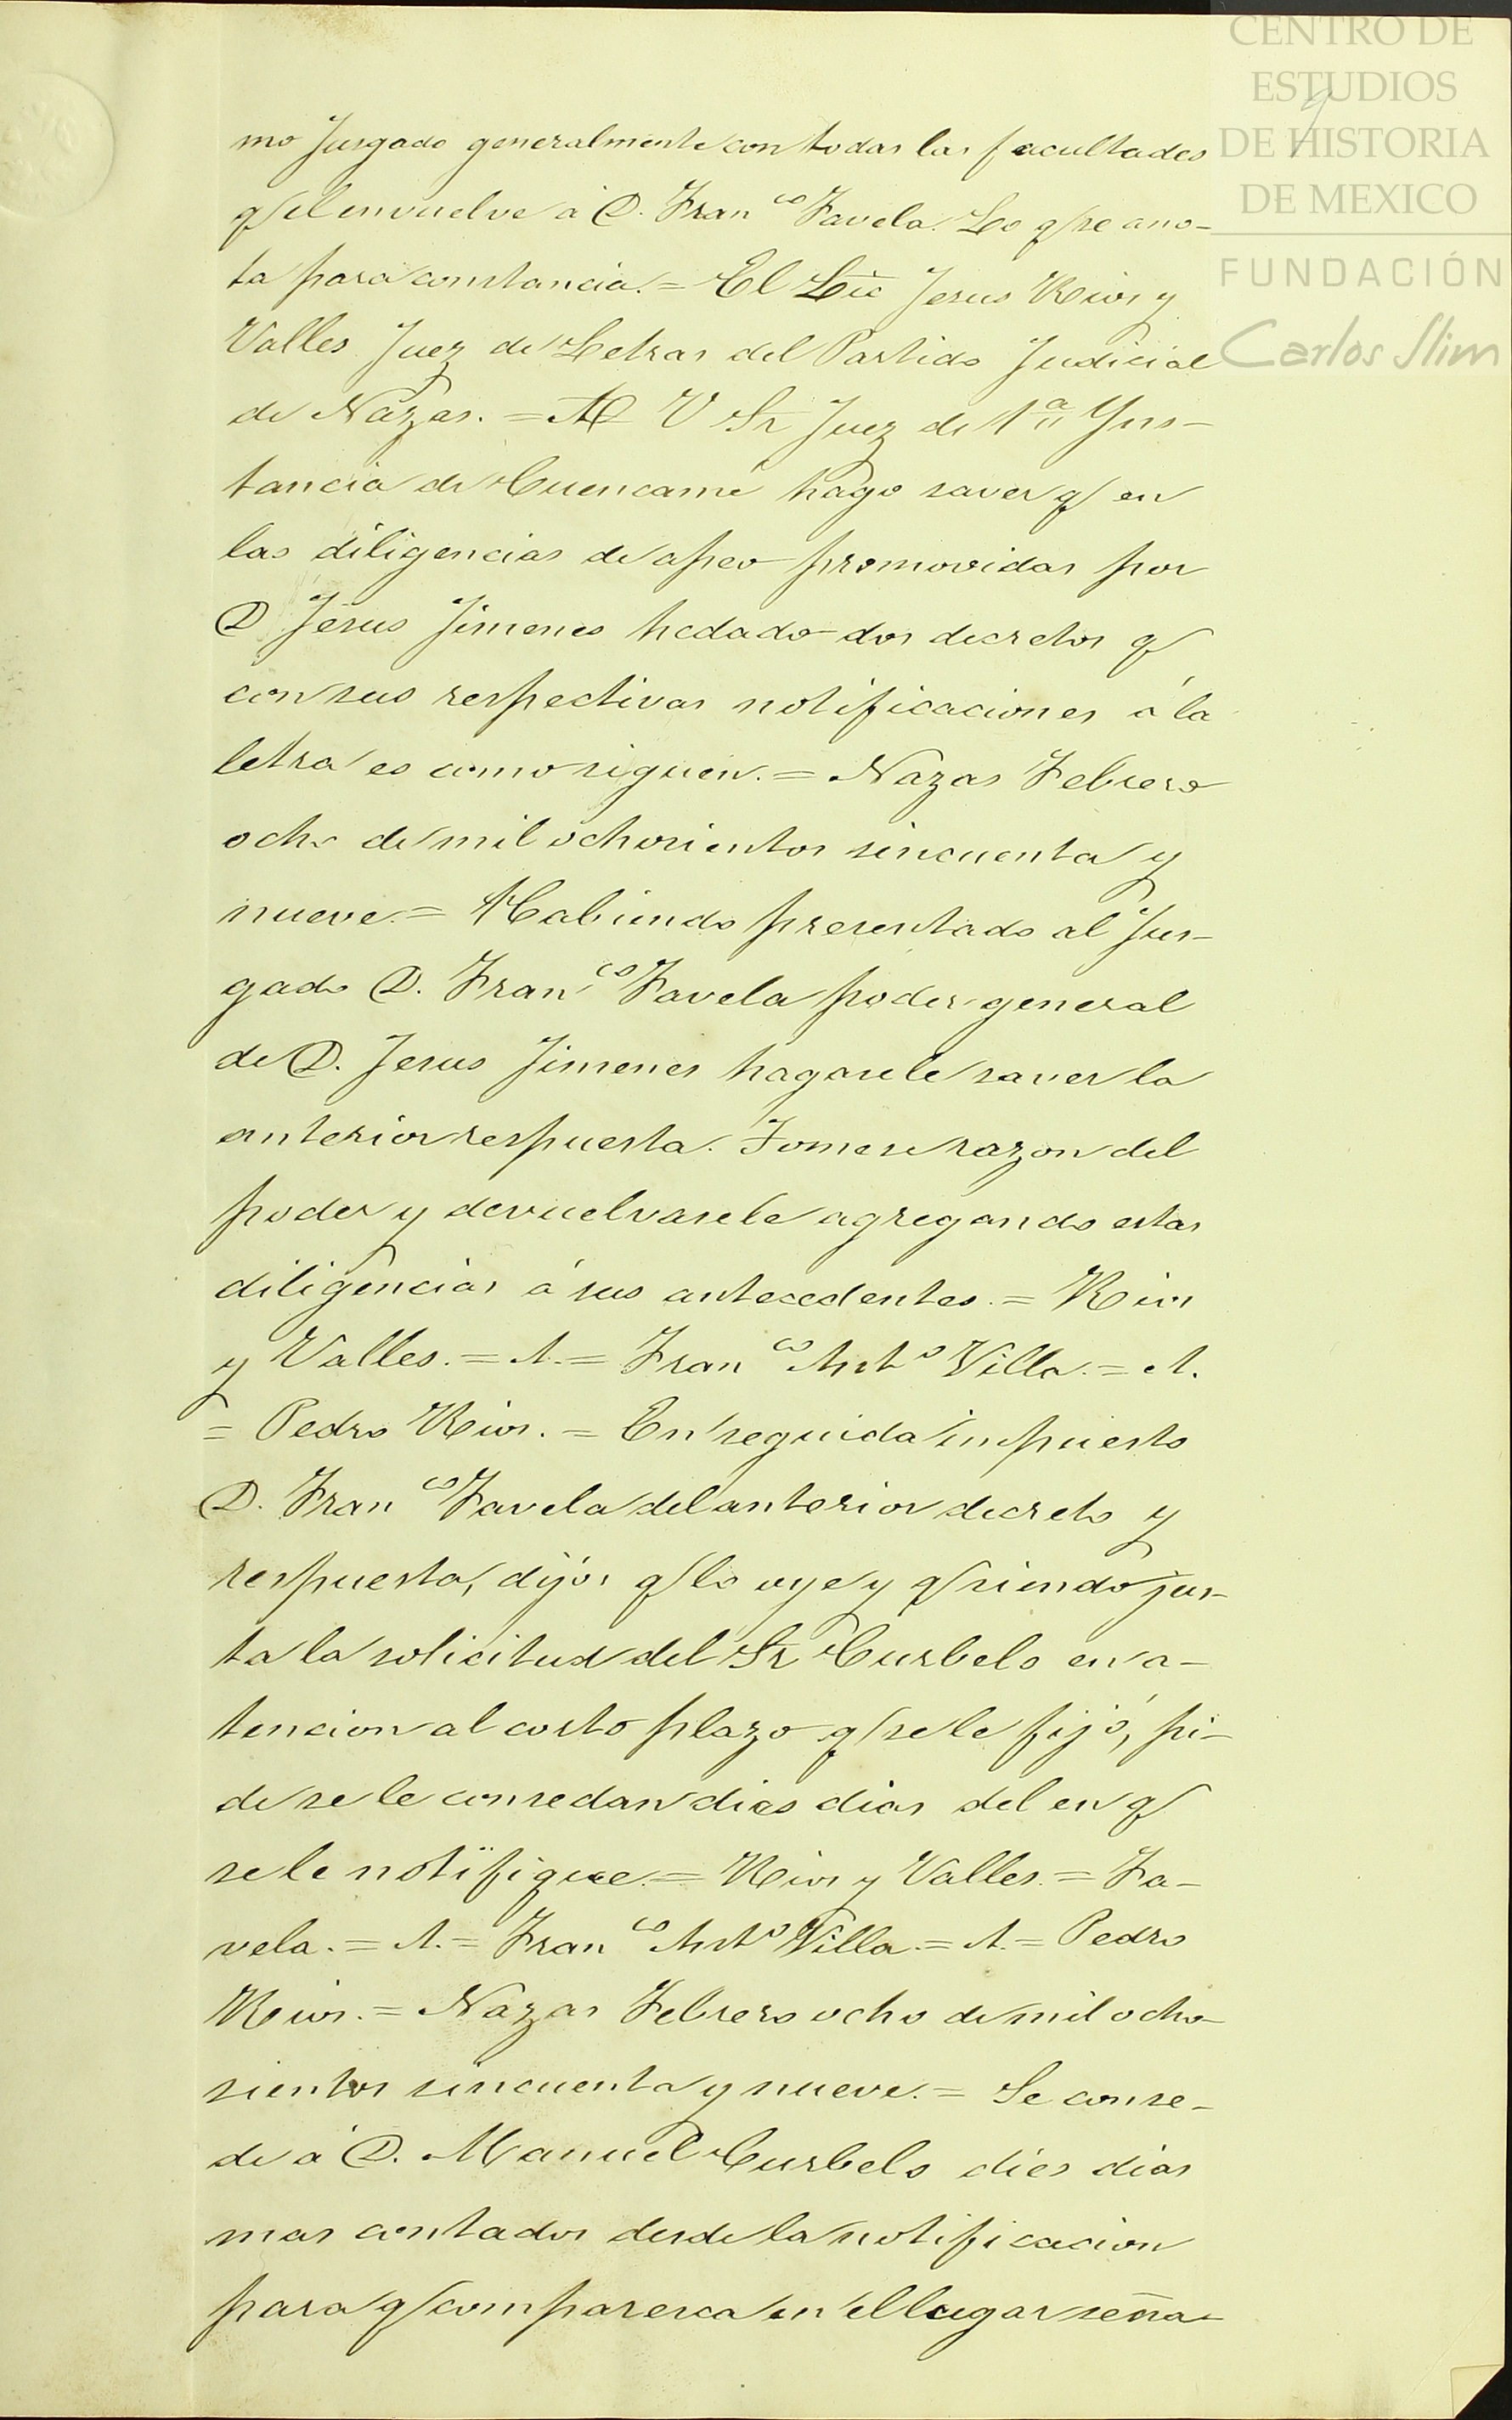 CENTRO DE
ESTUDIOS
DE HISTORIA
DE MEXICO
FUNDACIÓN
Carlos Slim
9
mo Jusgado generalmente con todas las facultades
q/ el envuelve á D. Fran co Favela. Lo q/ se ano-
ta para constancia. = El Lic Jesus Rios y
Valles Juez de Letras del Partido Judicial
de Nazas. = A V Sr Juez de 1a Yns-
tancia de Cuencamé hago saver q/ en
las diligencias de apeo promovidas por
D Jesus Jimenes he dado dos decretos q/
con sus respectivas notificaciones á la
letra es como siguen. = Nazas Febrero
ocho de mil ochosientos sincuenta y
nueve. = Habiendo presentado al Jus-
gado D. Fran co Favela poder general
de D. Jesus Jimenes hagasele saver la
anterior respuesta. Tomese razon del
poder y devuelvasele agregando estas
diligencias á sus antecedentes. = Rios
y Valles. = A. = Fran co Anto Villa. = A.
= Pedro Rios. = En seguida impuesto
D. Fran co Favela del anterior decreto y
respuesta, dijo: q/ lo oye y q/ siendo jus-
ta la solicitud del Sr Curbelo en a-
tencion al corto plazo q/ se le fijó, pi-
de se le consedan dies dias del en q/
se le notifique. = Rios y Valles. = Fa-
vela. = A. = Fran co Anto Villa. = A. = Pedro
Rios. = Nazas Febrero ocho de mil ocho-
sientos sincuenta y nueve. = Se conse-
de á D. Manuel Curbelo dies dias
mas contados desde la notificacion
para q/ comparesca en el lugar seña-